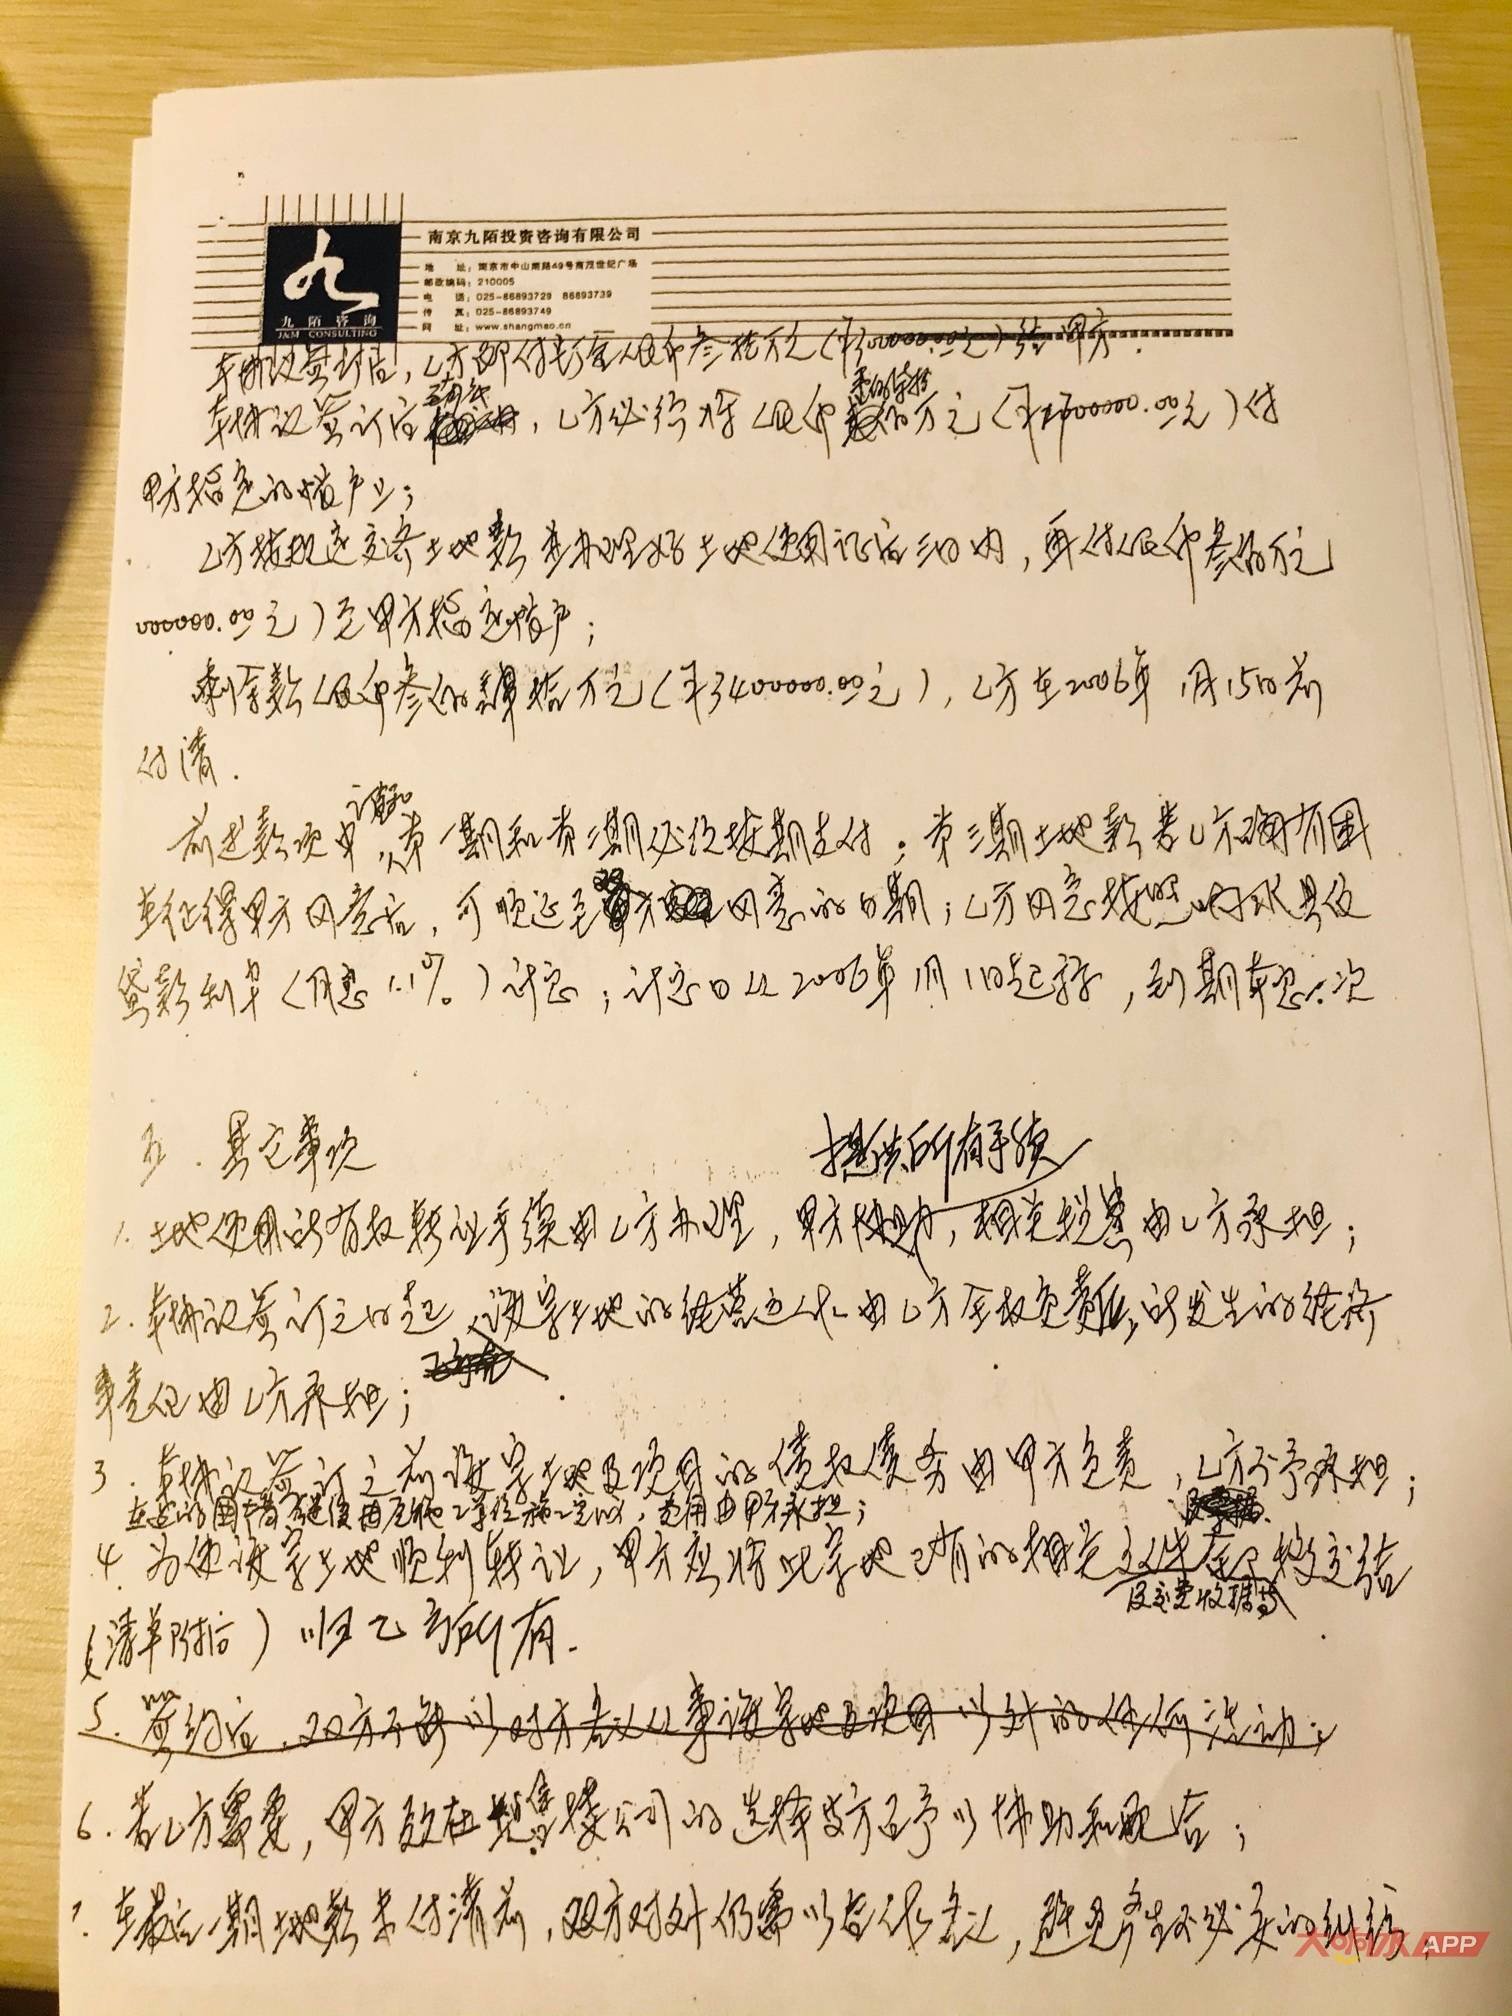 南京九陌投资咨询有限公司
地 址：南京市中山南路49号商茂世纪广场
邮政编码：210005
电 话：025-86893729 86893739
传 真：025-86893749
网 址：www.shangmao.cn
九陌咨询
J&M CONSULTING
本协议签订后，乙方即付订金人民币叁拾万元（¥300000.00元）给甲方.
本协议签订后 ，乙方必须将人民币 万元（ 00000.00元）付
甲方指定的帐户上；
乙方按规定交齐土地款并办理好土地使用证后三日内，再付人民币叁佰万元
000000.00元）至甲方指定帐户；
剩余款人民币叁佰肆拾万元（¥3400000.00元），乙方在2006年 月15日前
付清.
前述款项中， 第一期和第二期必须按期支付；第三期土地款若乙方确有困
在征得甲方同意后，可顺延至双方同意的日期；乙方同意按照
贷款利率（月息1.1%）计息；计息日从2006年1月1日起算，到期本息一次
五.其它事项
提供所有手续
1.土地使用所有权转让手续由乙方办理，甲方协助，相关税费由乙方承担；
2.本协议签订之日起，该宗土地的经营运作由乙方全权负责，所发生的经济
责任由乙方承担；
3.本协议签订之前该宗土地及项目的债权债务由甲方负责，乙方不予承担；
在建的围墙 ，费用由甲方承担；
4.为使该宗土地顺利转让，甲方应将此宗地已有的相关文件全部移交给
及交费收据等
（清单附后）归乙方所有.
5.签约后，双方不能以对方名义从事该宗地及项目以外的任何活动；
6.若乙方需要，甲方须在 售楼公司的选择方面予以协助和配合；
7.在最后一期土地款未付清前，双方对外仍需以合作名义，避免产生不必要的纠纷；
大 APP